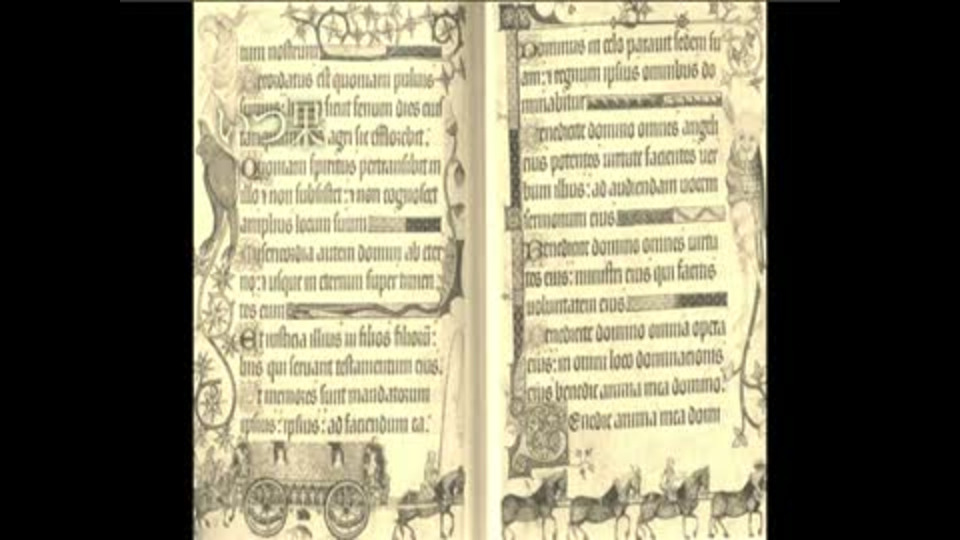 tum nostrum
Recordatus est quoniam pulvis
sumus: homo sicut fenum dies eius
tanquam agri sic efflorebit.
Quoniam spiritus pertransibit in
illo ⁊ non subsistet: ⁊ non cognoscet
amplius locum suum
Misericordia autem domini ab eter
no: ⁊ usque in eternum super timen
tes eum
Et iusticia illius in filios filiorū:
hiis qui servant testamentum eius.
Et memores sunt mandatorum
ipsius: ipsius: ad faciendum ea.
Dominus in celo paravit sedem su
am: ⁊ regnum ipsius omnibus do
minabitur
Benedicite domino omnes angeli
eius potentes virtute facientes ver
bum illius: ad audiendam vocem
sermonum eius
Benedicite domino omnes virtu
tes eius: ministri eius qui facitis
voluntatem eius
Benedicite domino omnia opera
eius: in omni loco dominacionis
eius benedic anima mea domino.
Benedic anima mea domi